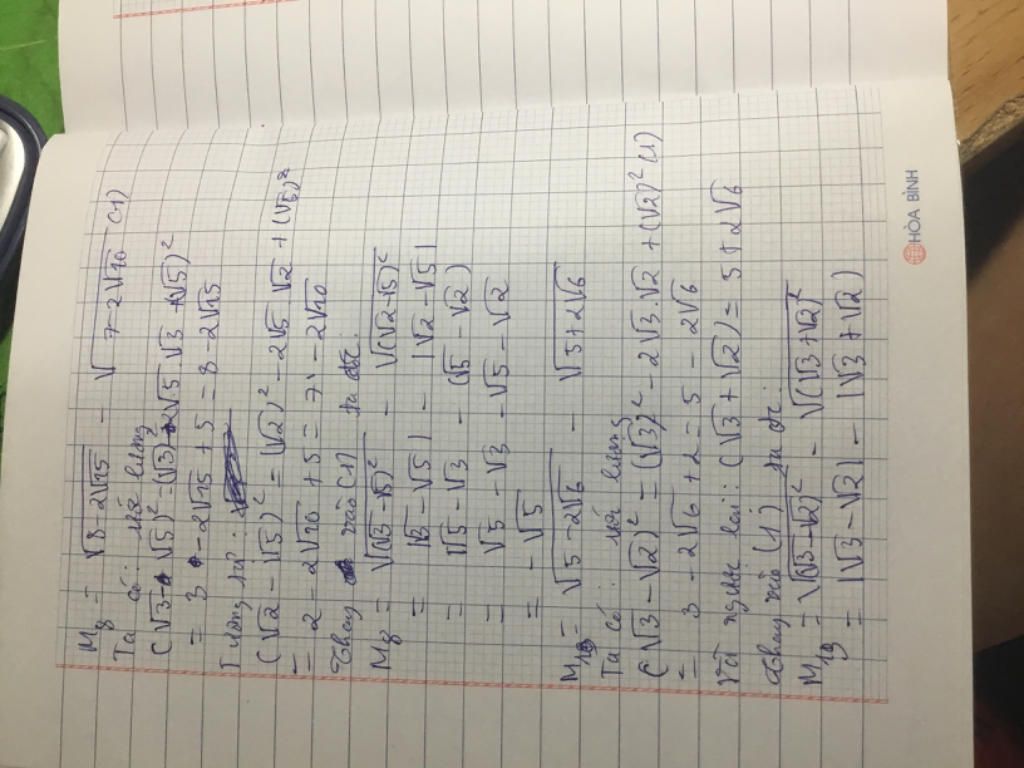 M₈ = √(8-2√15) - √(7-2√10) (1)
Ta có:
(√3-√5)² = (√3)² - 2√5.√3 + (√5)²
= 3 - 2√15 + 5 = 8 - 2√15
Tương tự:
(√2 - √5)² = (√2)² - 2√5.√2 + (√5)²
= 2 - 2√10 + 5 = 7 - 2√10
Thay vào (1) ta đc:
M₈ = √((√3-√5)²) - √((√2-√5)²)
= |√3-√5| - |√2-√5|
= √5-√3 - (√5-√2)
= √5 - √3 - √5 - √2
= -√5
M₁₉ = √(5-2√6) - √(5+2√6)
Ta có:
(√3-√2)² = (√3)² - 2√3.√2 + (√2)² (1)
= 3 - 2√6 + 2 = 5 - 2√6
Và ngược lại: (√3+√2) = 5+2√6
Thay vào (1) ta đc:
M₁₉ = √((√3-√2)²) - √((√3+√2)²)
= |√3-√2| - |√3+√2)
HÒA BÌNH